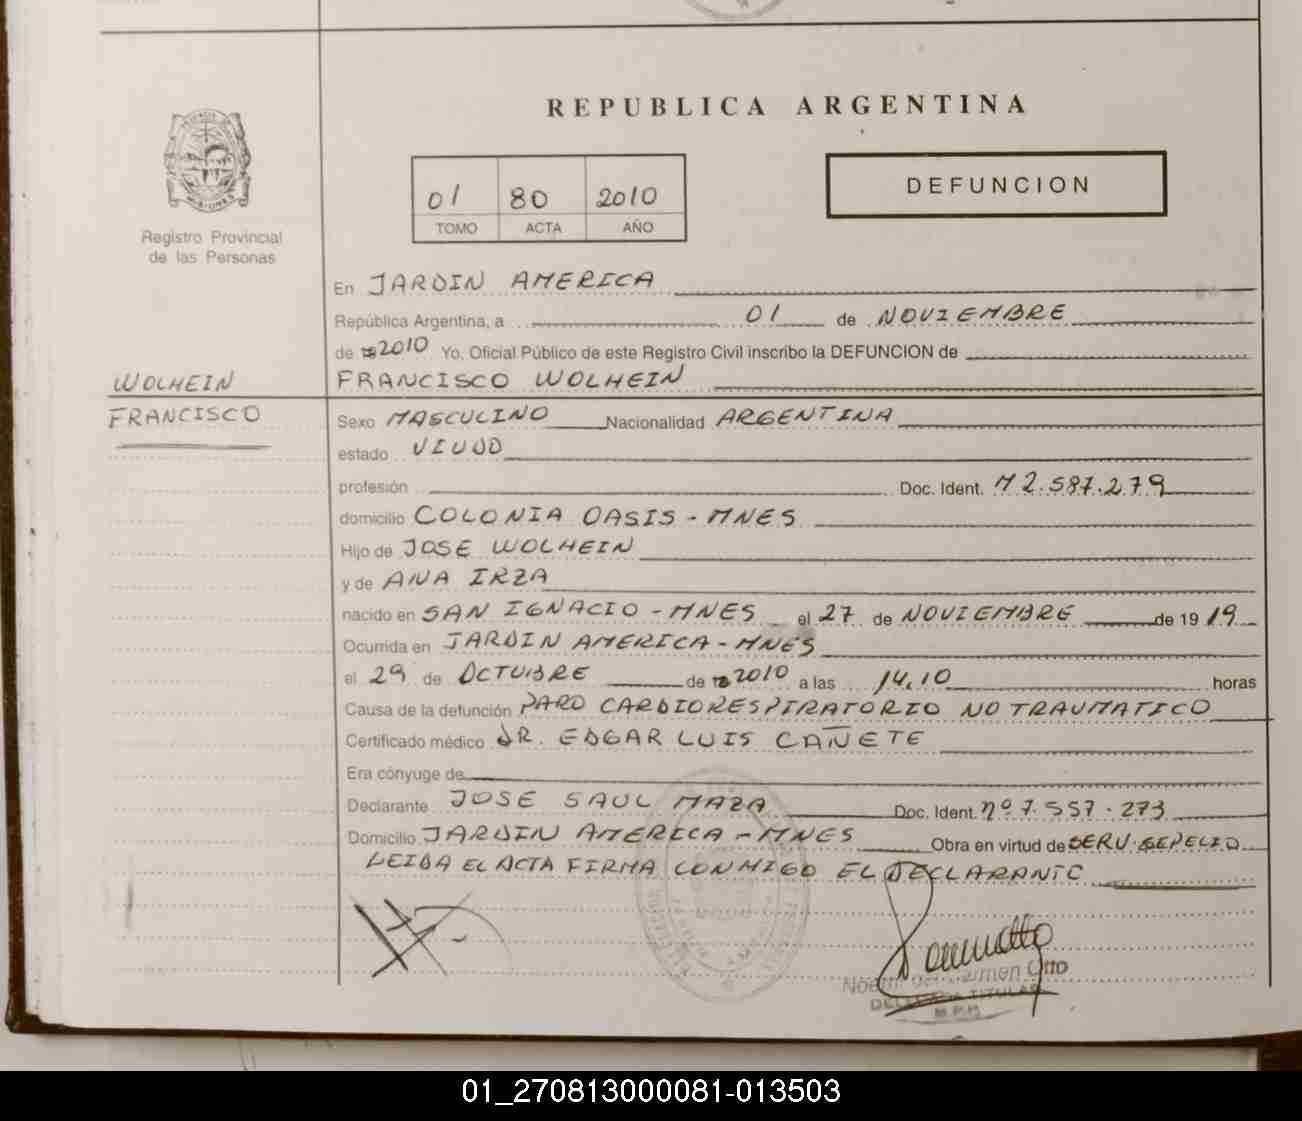 REPUBLICA ARGENTINA
01 80 2010
TOMO ACTA AÑO
DEFUNCION
Registro Provincial
de las Personas
En JARDIN AMERICA
República Argentina, a 01 de NOVIEMBRE
de 2010 Yo, Oficial Público de este Registro Civil inscribo la DEFUNCION de
WOLHEIN
FRANCISCO
FRANCISCO WOLHEIN
Sexo MASCULINO Nacionalidad ARGENTINA
estado VIUDO
profesión Doc. Ident. M 2.587.279
domicilio COLONIA OASIS - MNES
Hijo de JOSE WOLHEIN
y de ANA IRZA
nacido en SAN IGNACIO - MNES el 27 de NOVIEMBRE de 19 19
Ocurrida en JARDIN AMERICA - MNES
el 29 de OCTUBRE de 2010 a las 14,10 horas
Causa de la defunción PARO CARDIORESPIRATORIO NO TRAUMATICO
Certificado médico DR. EDGAR LUIS CAÑETE
Era cónyuge de
Declarante JOSE SAUL MAZA Doc. Ident. nº 7.557.273
Domicilio JARDIN AMERICA - MNES Obra en virtud de SERV. SEPELIO
LEIDA EL ACTA FIRMA CONMIGO EL DECLARANTE
Noemi del Carmen Otto
DELEGADA TITULAR
01_270813000081-013503